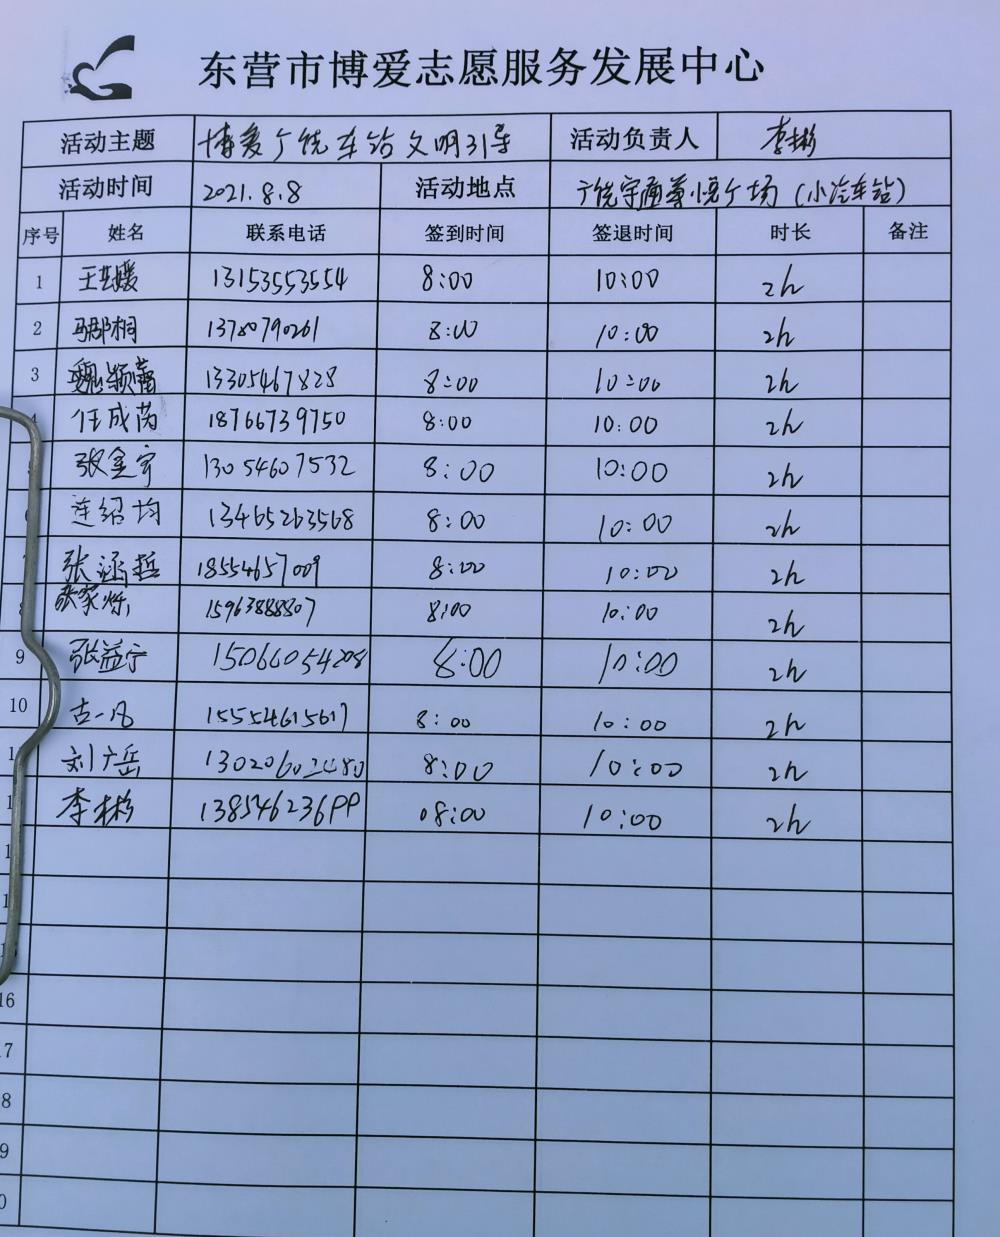 东营市博爱志愿服务发展中心
活动主题 博爱广饶车站文明引导 活动负责人 李彬
活动时间 2021.8.8 活动地点 广饶宇通尊悦广场（小汽车站）
序号 姓名 联系电话 签到时间 签退时间 时长 备注
1 王艺媛 13153553554 8:00 10:00 2h
2 桐 13780790261 8:00 10:00 2h
3 魏颖 13305467828 8:00 10:00 2h
4 任成芮 18766739750 8:00 10:00 2h
5 张金宇 13054607532 8:00 10:00 2h
6 连绍均 13465263568 8:00 10:00 2h
7 张涵哲 18554657009 8:00 10:00 2h
8 张家烁 15963888807 8:00 10:00 2h
9 张益宁 15066054208 8:00 10:00 2h
10 古一凡 15554615617 8:00 10:00 2h
1 刘广岳 13020602480 8:00 10:00 2h
1 李彬 138546236PP 08:00 10:00 2h
1
1
1
16
17
8
9
0